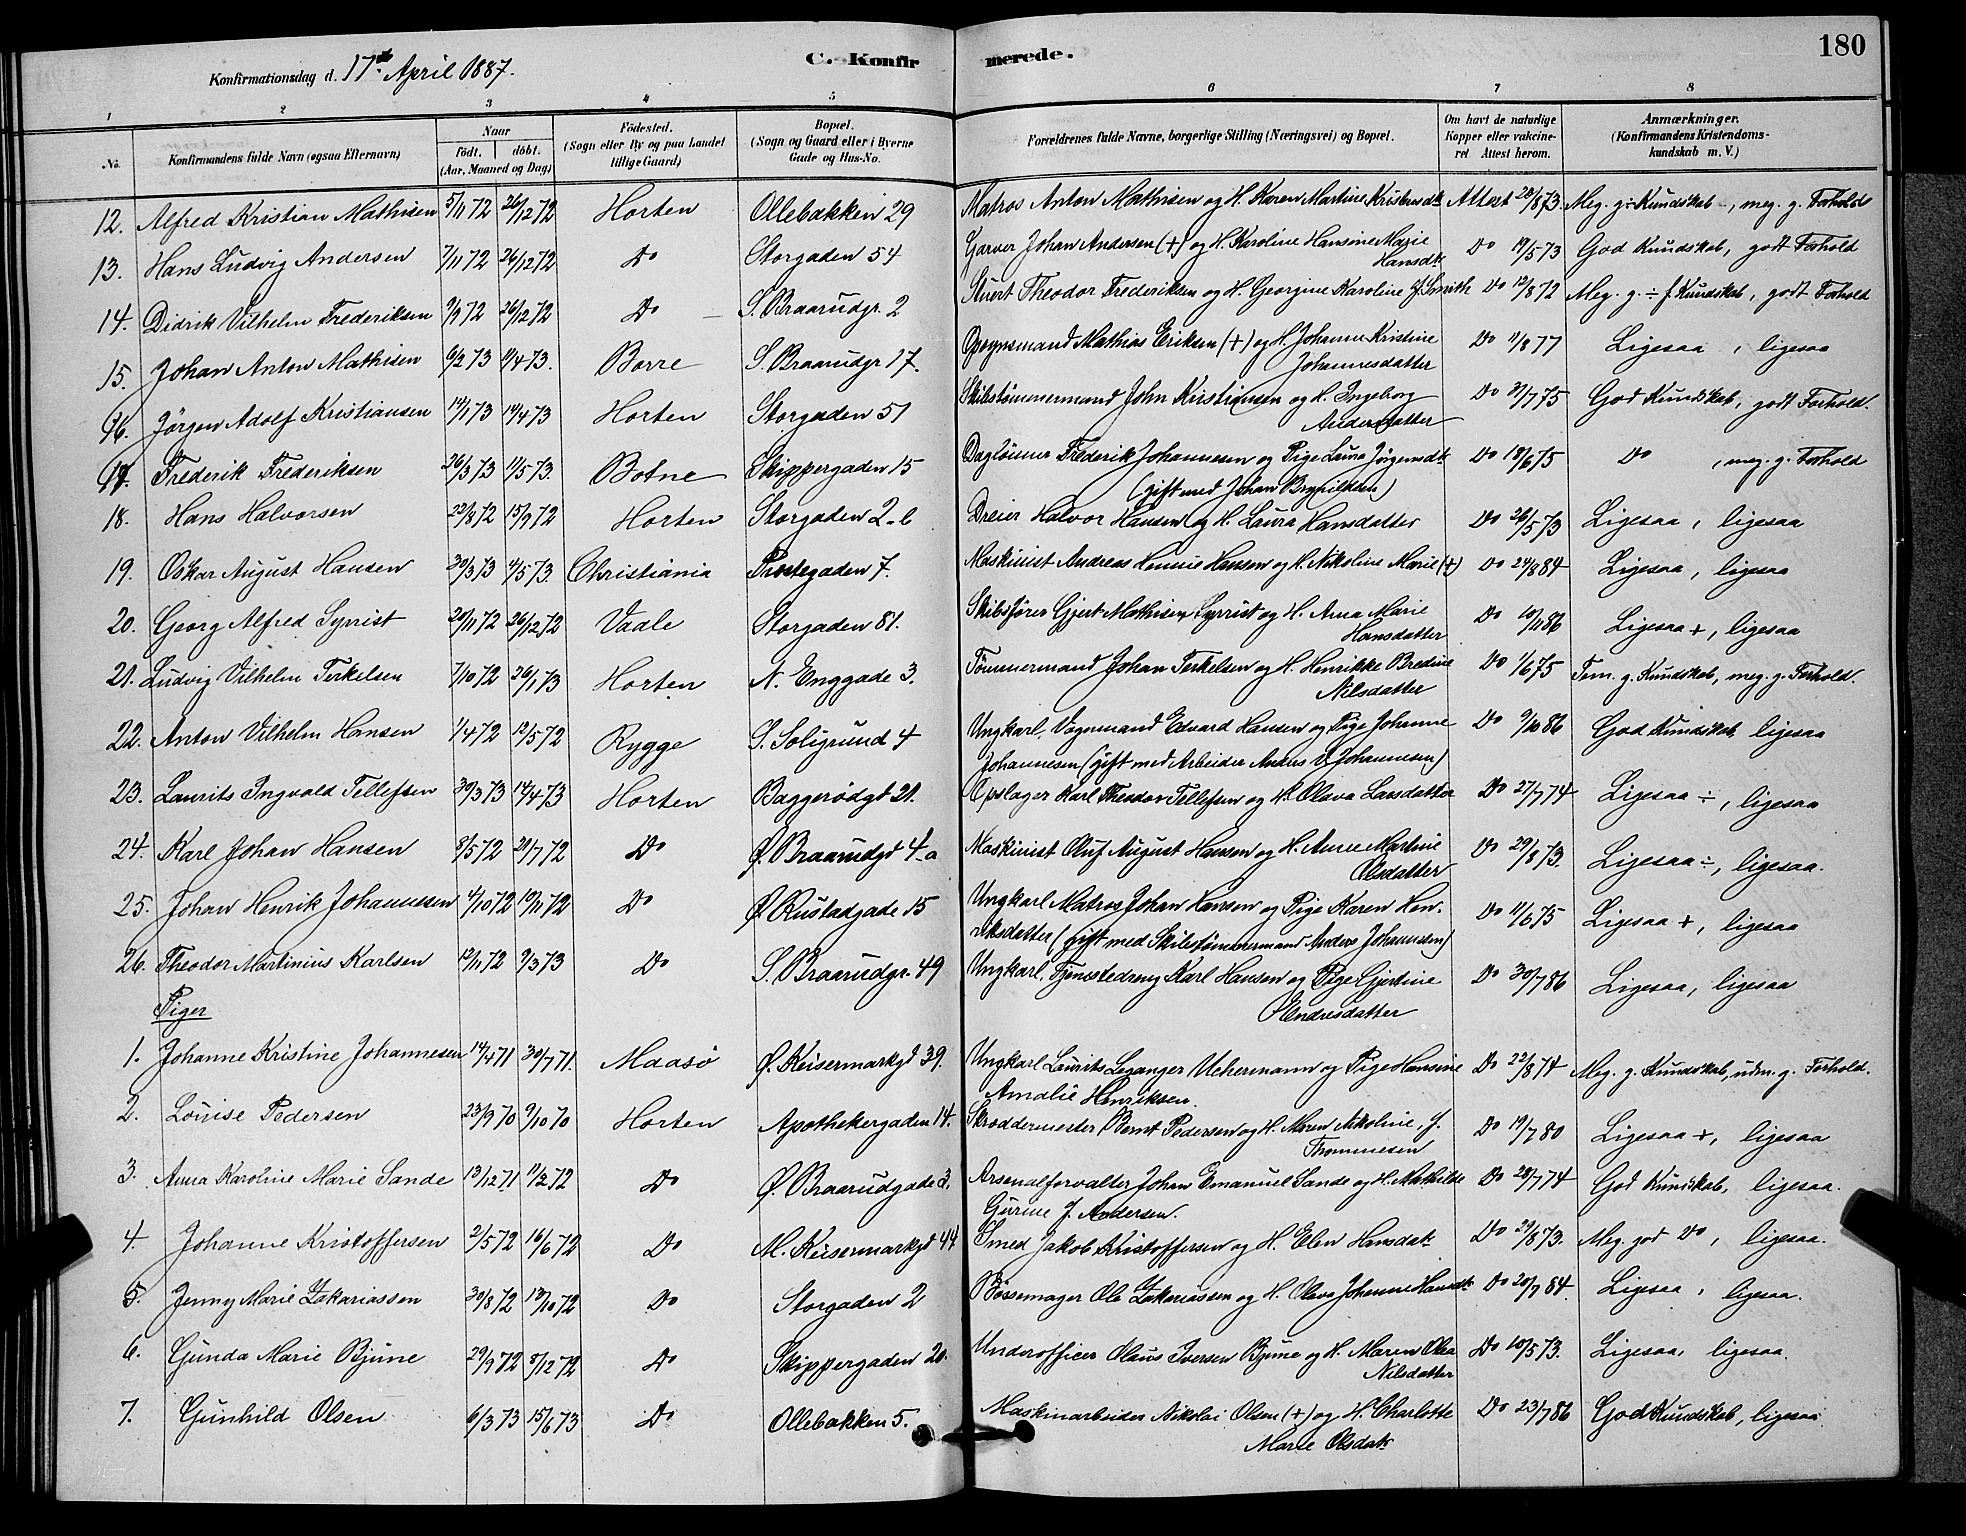 Konfirmationsdag d. 17de April 1887.
C. Konfirmerede.
180
1 2 3 4 5 6 7 8
No. Konfirmandens fulde Navn (ogsaa Efternavn) Naar Født. døbt. (Aar, Maaned og Dag) Fødested. (Sogn eller By og paa Landet tillige Gaard) Bopæl. (Sogn og Gaard eller i Byerne Gade og Hus-No. Forældrenes fulde Navne, borgerlige Stilling (Næringsvei) og Bopæl. Om havt de naturlige Kopper eller vakcineret. Attest herom. Anmærkninger. (Konfirmandens Kristendomskundskab m. V.)
12. Alfred Kristian Mathisen 5/11 72 26/12 72 Horten Ollebakken 29 Matros Anton Mathisen og H. Karen Martine Kristensdtr Attest 28/8 73. Meg. g. ÷ Kundskab, meg. g. Forhold
13. Hans Ludvig Andersen 7/11 72 26/12 72 Do Storgaden 54 Garver Johan Andersen (+) og H. Karoline Hansine Marie Hansdtr Do 19/5 73 God Kundskab, godt Forhold
14. Didrik Vilhelm Frederiksen 9/9 72 26/12 72 Do S. Braarudgr. 2 Stuert Theodor Frederiksen og H. Georgine Karoline f. Smith Do 12/8 72 Meg. g. ÷ f Kundskab, godt Forhold
15. Johan Anton Mathisen 6/2 73 11/4 73. Borre S. Braarudgr 17. Opsynsmand Mathias Eriksen (+) og H. Johanne Kristine Johannesdatter Do 11/8 77 Ligesaa, ligesaa
16. Jörgen Adolf Kristiansen 14/1 73 14/4 73 Horten Storgaden 51 Skibstømmermand John Kristiansen og H. Ingeborg Andersdatter Do 31/7 75 God Kundskab, godt Forhold.
17. Frederik Frederiksen 26/3 73 11/5 73. Botne Skippergaden 15 Daglönner Frederik Johannesen og Pige Laura Jörgensdtr (gift med Johan Brynildsen) Do 18/6 75 Do, meg. g. Forhold
18. Hans Halvorsen 22/8 72 15/9 72 Horten Storgaden 2-b Dreier Halvor Hansen og H. Laura Hansdatter Do 26/5 73 Ligesaa, ligesaa
19. Oskar August Hansen 30/3 73 4/5 73. Christiania Parstegaden 7. Maskinist Andreas Hennie Hansen og H. Nikoline Marie (+) Do 24/8 84 Ligesaa, ligesaa
20. Georg Alfred Syrrist 20/11 72 26/12 72 Vaale Storgaden 81. Skibsfører Gjert Mathisen Syrrist og H. Anna Marie Hansdatter Do 10/11 86 Ligesaa +, ligesaa
21. Ludvig Vilhelm Terkelsen 7/10 72 26/1 73 Horten N. Enggade 3. Tømmermand Johan Terkelsen og H. Henrikke Bredine Nilsdatter Do 1/6 75 Tem. g. Kundskab, meg. g. Forhold.
22. Anton Vilhelm Hansen 1/4 72 12/5 72 Rygge S. Soligrund 4 Ungkarl, Vognmand Edvard Hansen og Pige Johanne Johannesen (gift med Arbeider Anders Johannesen) Do 9/10 86 God Kundskab, ligesaa
23. Laurits Ingvald Tellefsen 30/3 73 14/4 73 Horten Baggerødgt 21. Opslager Karl Theodor Tellefsen og H. Olava Larsdatter Do 27/7 74 Ligesaa ÷, ligesaa
24. Karl Johan Hansen 8/5 72 21/7 72 Do Ø. Braarudgd 4-a Maskinist Oluf August Hansen og H. Anne Martine Olsdatter Do 29/8 73. Ligesaa ÷, ligesaa.
25. Johan Henrik Johannesen 4/10 72 10/11 72 Do Ø. Rustadgade 15 Ungkarl Matros Johan Hansen og Pige Karen Henriksdatter (gift med Skibstømmermand Anders Johannesen) Do 11/6 75 Ligesaa +, ligesaa
26. Theodor Martinius Karlsen 12/11 72 9/3 73 Do S. Braarudgr. 49 Ungkarl, Tjenestedreng Karl Hansen og Pige Gjertine Endresdatter Do 30/7 86 Ligesaa, ligesaa
Piger
1. Johanne Kristine Johannesen 14/4 71 30/7 71. Maasö Ø. Keisermarkgd 39. Ungkarl Laurits Leganger Uchermann og Pige Hansine Amalie Henriksen. Do 22/8 74 Meg. g. Kundskab, udm. g. Forhold.
2. Louise Pedersen 23/9 70 9/10 70 Horten Apothekergaden 14. Skreddermester Bernt Pedersen og H. Maren Nikoline, f. Thommesen Do 19/7 80 Ligesaa +, ligesaa
3. Anna Karoline Marie Sande 13/12 71 11/2 72 Do Ø. Braarudgade 3. Arsenalforvalter Johan Emanuel Sande og H. Mathilde Gurine f. Andersen. Do 28/7 74 God Kundskab, ligesaa.
4. Johanne Kristoffersen 2/5 72 16/6 72 Do M. Keisermarkgd 44 Smed Jakob Kristoffersen og H. Elen Hansdatr Do 29/8 73. Meg. god Do, ligesaa.
5. Jenny Marie Zakariassen 30/8 72 13/10 72 Do Storgaden 2 Børsemager Ole Zakariassen og H. Olava Johanne Hansdtr Do 20/7 84. Ligesaa, ligesaa.
6. Gunda Marie Bjune 29/9 72 8/12 72 Do Skippergaden 20. Underofficer Olaus Iversen Bjune og H. Maren Olea Nilsdatter Do 10/5 73. Ligesaa, ligesaa.
7. Gunhild Olsen 6/3 73 15/6 73 Do Ollebakken 5. Maskinarbeider Nikolai Olsen (+) og H. Charlotte Marie Olsdatr Do 23/7 86 God Kundskab, ligesaa